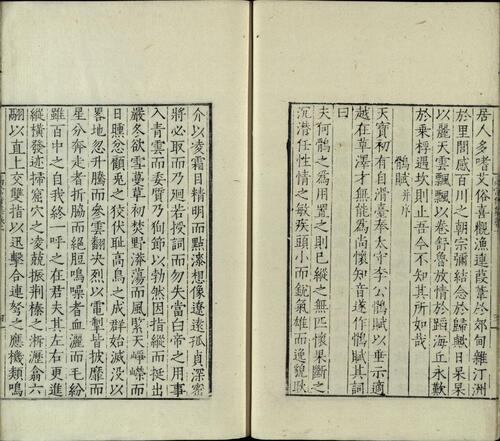 居人多嗜艾俗喜觀漁連葭葦於郊甸雜汀洲
於里閈感百川之朝宗彌結念於歸歟日杲杲
以麗天雲飄飄以卷舒魯放情於蹈海丘永歎
於乘桴遇坎則止吾今不知其所如哉
鶻賦并序
天寶初有自滑臺奉太守李公鶻賦以垂示適
越在草澤才無能爲尚懷知音遂作鶻賦其詞
曰
夫何鶻之爲用置之則已縱之無匹懷果斷之
沉潛任性情之敏疾頭小而銳氣雄而逸貌耿
介以凌霜目精明而點漆想像遼遠孤貞深密
將必取而乃廻若授詞而勿失當白帝之用事
入青雲而委質乃狥節以勃然因指縱而挺出
嚴冬欲雪蔓草初焚野漭蕩而風緊天崢嶸而
日曛忿顧兎之狡伏耻高鳥之成群始滅没以
畧地忽升騰而參雲翻决烈以電掣皆披靡而
星分奔走者折脇而絕脰鳴噪者血灑而毛紛
雖百中之自我終一呼之在君夫其左右更進
縱橫發迹掃窟穴之凌兢振荆榛之淅瀝翕六
翮以直上交雙指以迅擊合連弩之應機類鳴